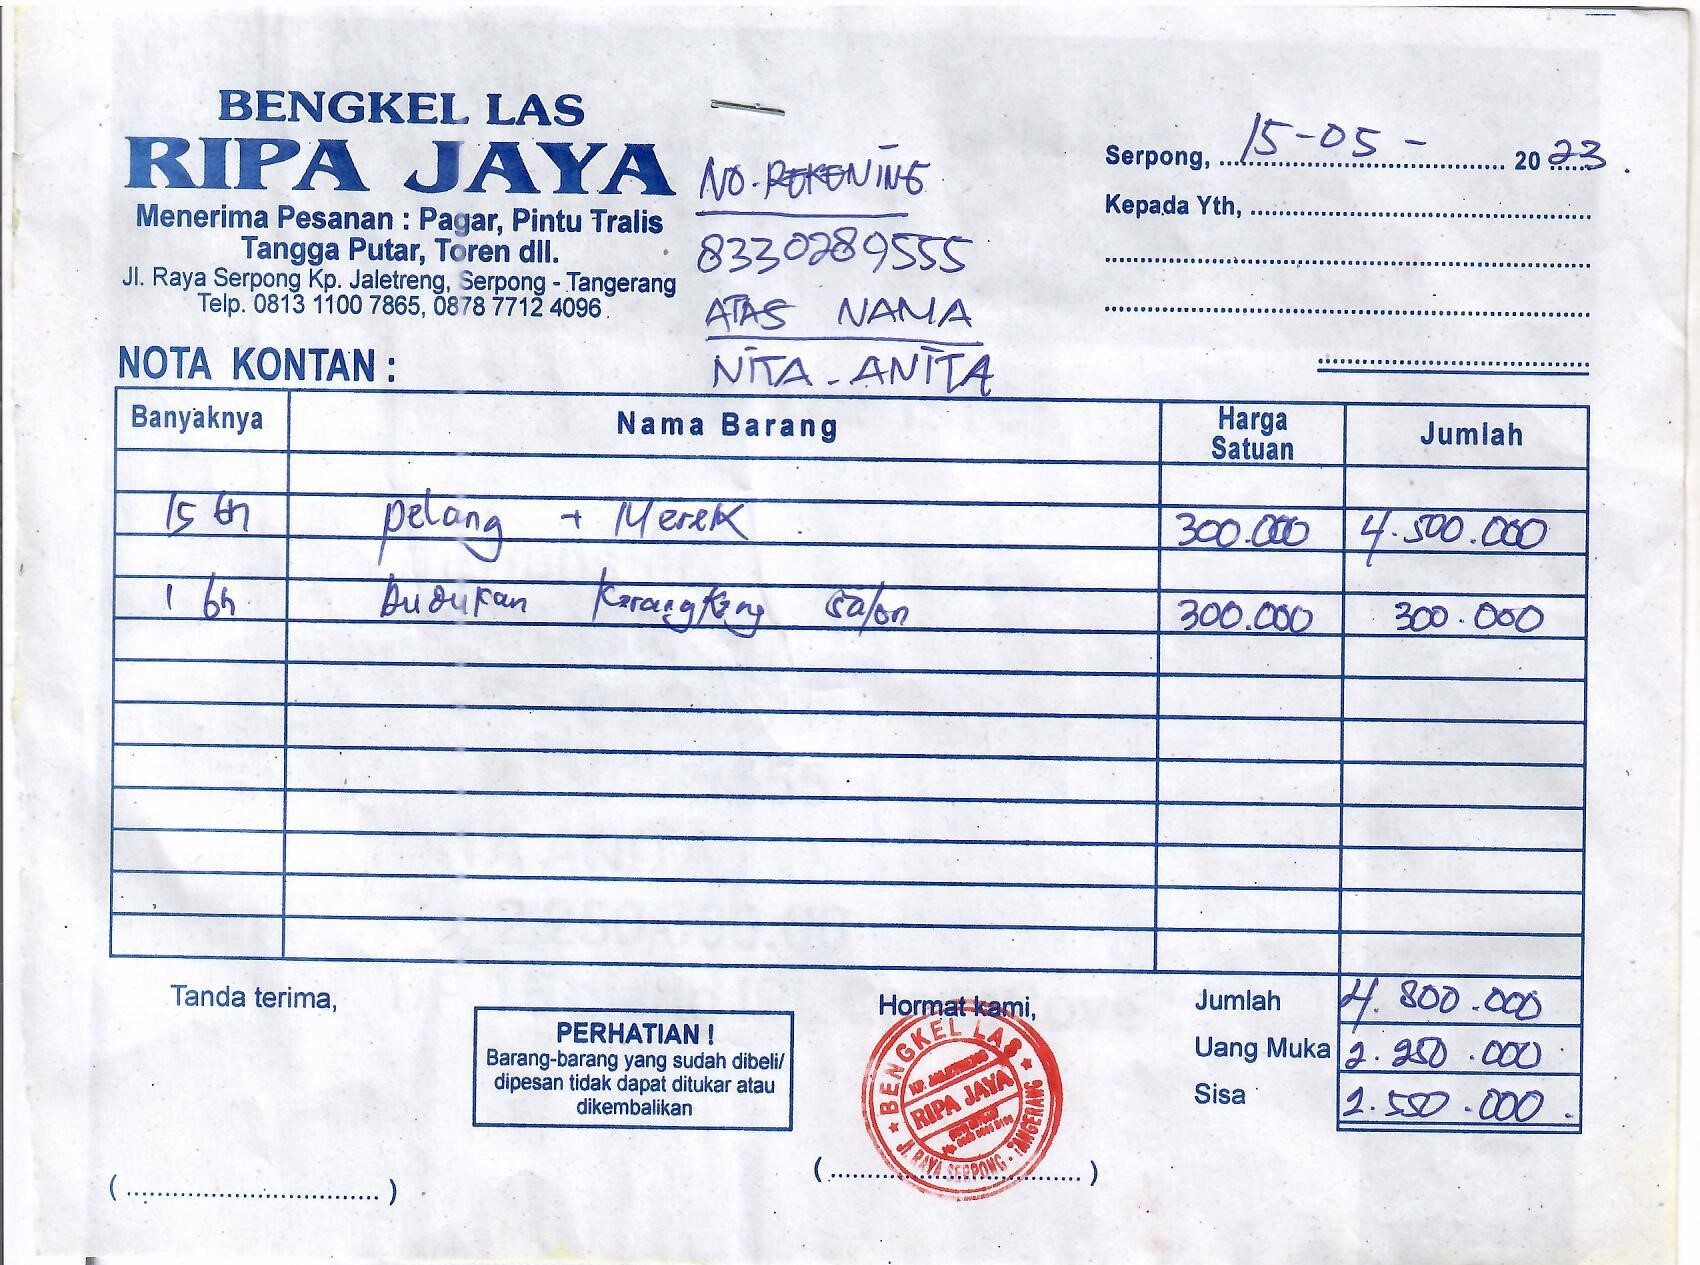 BENGKEL LAS
RIPA JAYA
Menerima Pesanan : Pagar, Pintu Tralis
Tangga Putar, Toren dll.
Jl. Raya Serpong Kp. Jaletreng, Serpong - Tangerang
Telp. 0813 1100 7865, 0878 7712 4096
NO. REKENING
8330289555
ATAS NAMA
NITA - ANITA
Serpong, 15-05- 2023.
Kepada Yth,
NOTA KONTAN :
Banyaknya Nama Barang Harga Satuan Jumlah
15 bh pelang + Merek 300.000 4.500.000
1 bh Dudukan Karangkeng salon 300.000 300.000
Tanda terima,
PERHATIAN !
Barang-barang yang sudah dibeli/
dipesan tidak dapat ditukar atau
dikembalikan
Hormat kami,
BENGKEL LAS
KP. JALETRENG
RIPA JAYA
JL. RAYA SERPONG - TANGERANG
Jumlah 4.800.000
Uang Muka 2.250.000
Sisa 2.550.000.